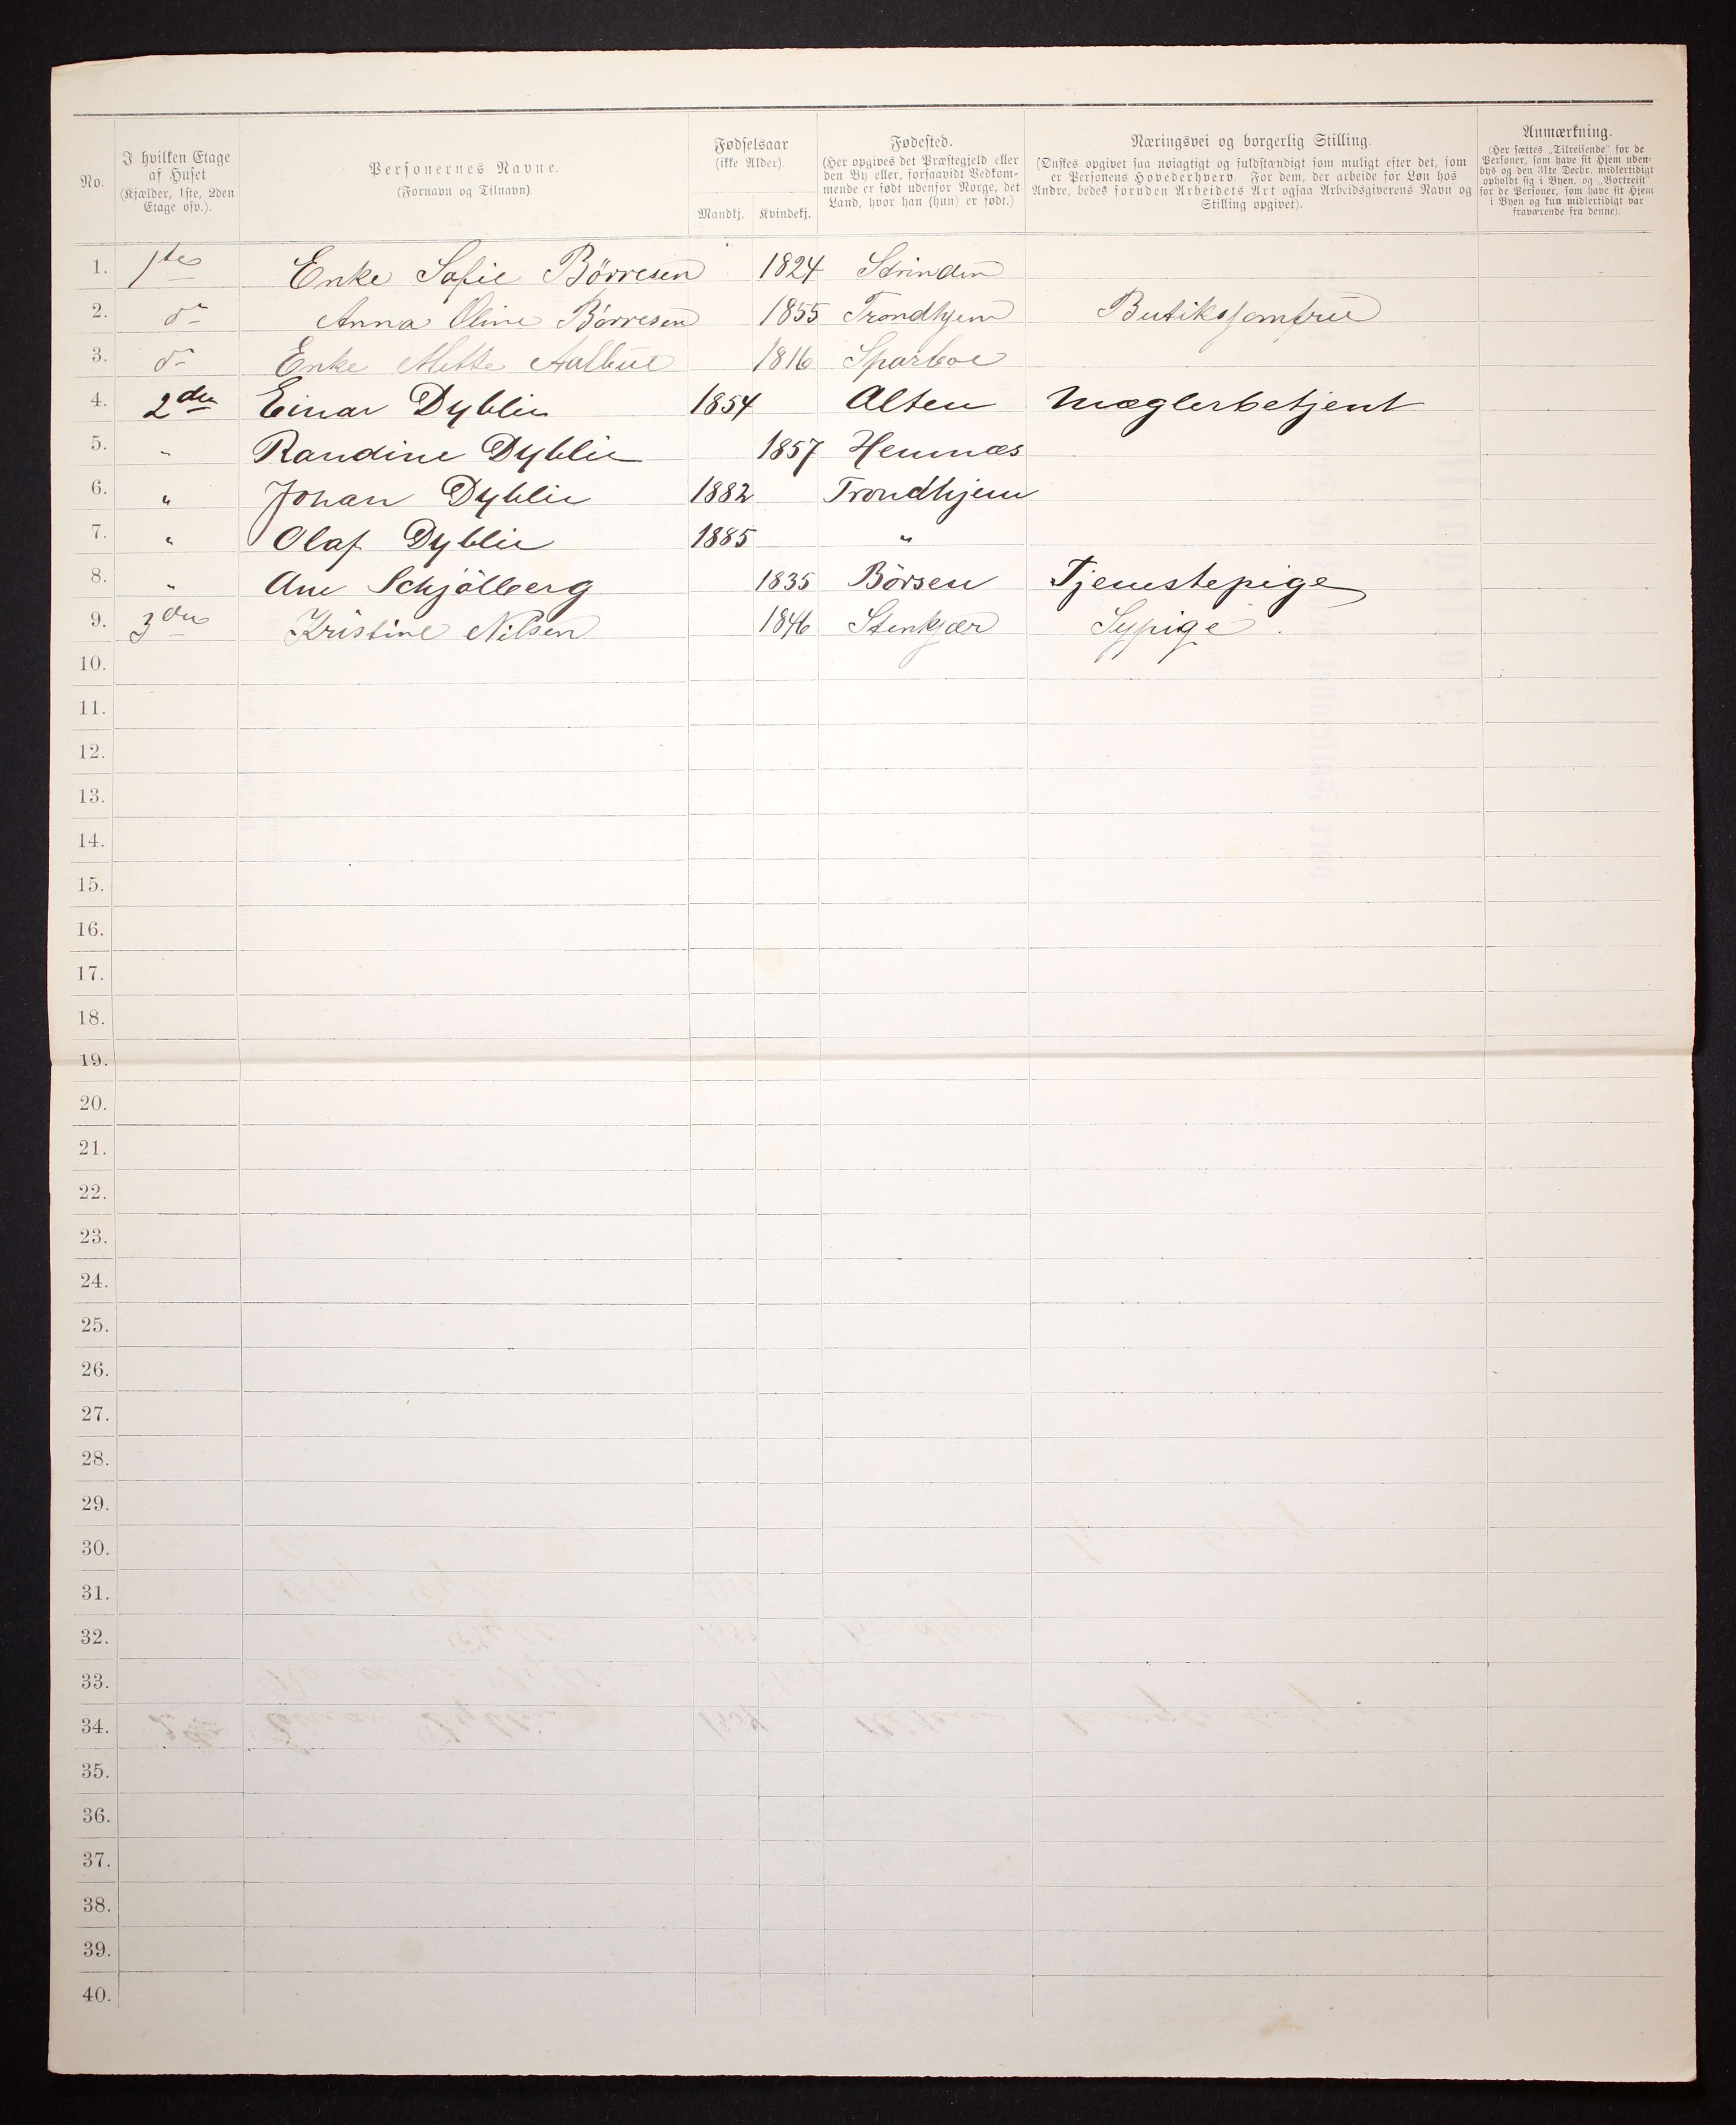 No.
I hvilken Etage
af Huset
(Kjælder, 1ste, 2den
Etage osv.).
Personernes Navne.
(Fornavn og Tilnavn).
Fødselsaar
(ikke Alder).
Mandkj. Kvindekj.
Fødested.
(Her opgives det Præstegjeld eller
den By eller, forsaavidt Vedkom-
mende er født udenfor Norge, det
Land, hvor han (hun) er født.)
Næringsvei og borgerlig Stilling.
(Ønskes opgivet saa nøiagtigt og fuldstændigt som muligt efter det, som
er Personens Hovederhverv. For dem, der arbeide for Løn hos
Andre, bedes foruden Arbeidets Art ogsaa Arbeidsgiverens Navn og
Stilling opgivet).
Anmærkning.
(Her sættes „Tilreisende" for de
Personer, som have sit Hjem uden-
bys og den 31te Decbr. midlertidigt
opholdt sig i Byen, og „Bortreist"
for de Personer, som have sit Hjem
i Byen og kun midlertidigt var
fraværende fra denne).
1. 1ste Enke Sofie Børresen 1824 Strinden
2. do Anna Oline Børresen 1855 Trondhjem Butiksjomfru
3. do Enke Mette Aalbue 1816 Sparboe
4. 2den Einar Dyblie 1854 Alten Mæglerbetjent
5. " Randine Dyblie 1857 Hemnæs
6. " Johan Dyblie 1882 Trondhjem
7. " Olaf Dyblie 1885 "
8. " Ane Schjölberg 1835 Börsen Tjenestepige
9. 3die Kristine Nilsen 1846 Stenkjær Sypige.
10.
11.
12.
13.
14.
15.
16.
17.
18.
19.
20.
21.
22.
23.
24.
25.
26.
27.
28.
29.
30.
31.
32.
33.
34.
35.
36.
37.
38.
39.
40.